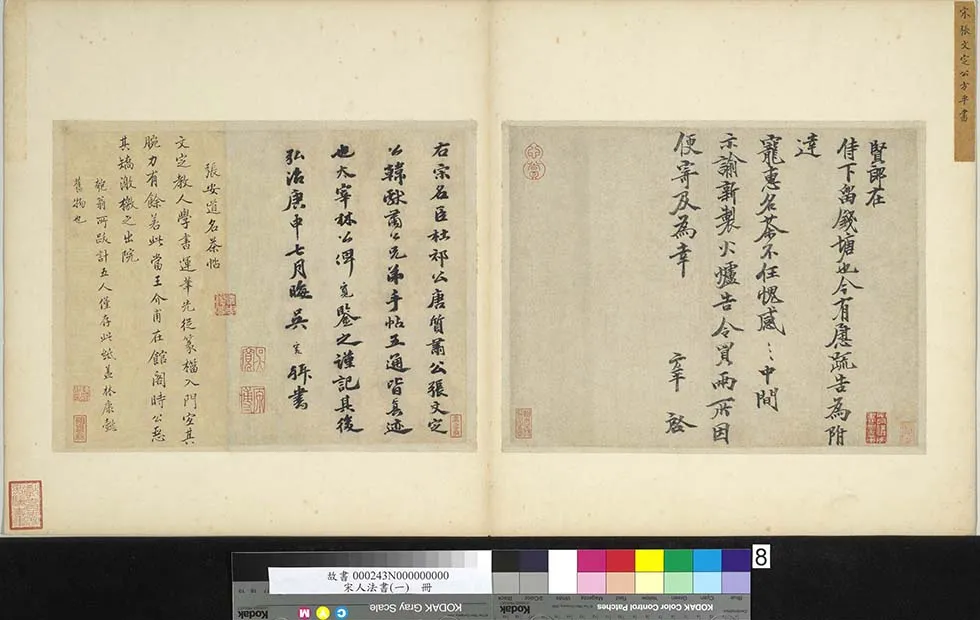 宋張文定公方平書
賢郎在
侍下留錢塘也今有慰疏告為附
達
寵惠名茶不任愧感〻中間
示諭新製火爐告令買兩所因
便寄及為幸
方平 啟
右宗名臣杜祁公唐質肅公張文定
公韓獻肅公兄弟手帖五通皆真迹
也太宰林公俾寬鑒之謹記其後
弘治庚申七月晦吳寬拜書
張安道名茶帖
文定教人學書運筆先從篆榴入門宜其
腕力有餘若此當王介甫在館閣時公惡
其矯激檄之出院
匏翁所跋計五人僅存此紙蓋林康懿
舊物也
8
故書 000243N000000000
宋人法書(一) 冊
KODAK Gray Scale
C Y M
Kodak
KODAK Color Control Patches
Blue Cyan Green Yellow Red Magenta White 3/Color Black